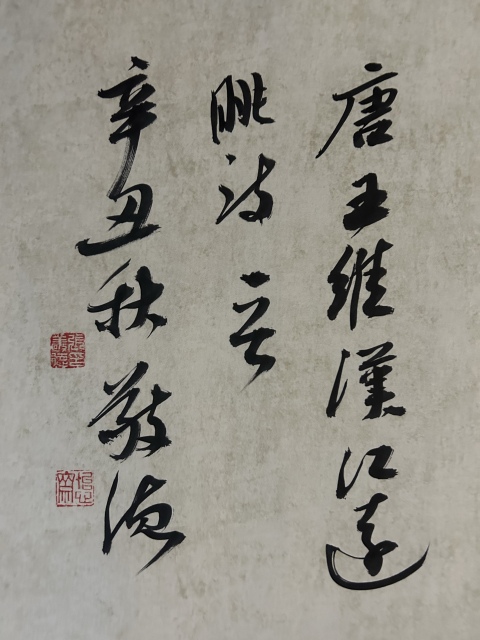 唐王維漢江遠
眺詩一首
辛丑秋敬德